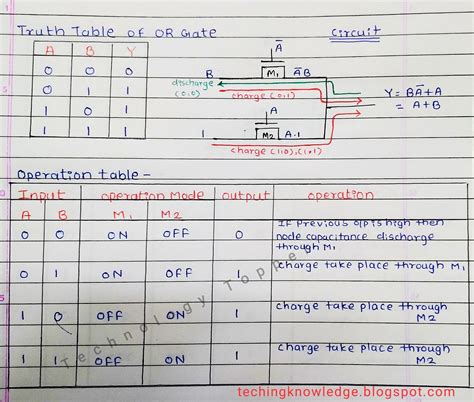 Truth Table of OR Gate
Circuit
A B Y
0 0 0
0 1 1
1 0 1
1 1 1
A̅
B M1 A̅B
discharge
(0,0)
charge (0,1)
Y= BA̅+A
= A+B
A
1 M2 A.1
charge (1,0),(1,1)
Operation table -
Input operation Mode output operation
A B M1 M2
0 0 ON OFF 0 If Previous o/p is high then
node capacitance discharge
through M1
0 1 ON OFF 1 charge take place through M1
1 0 OFF ON 1 charge take place through
M2
1 1 OFF ON 1 Charge take place through
M2
Technology Topper
techingknowledge.blogspot.com